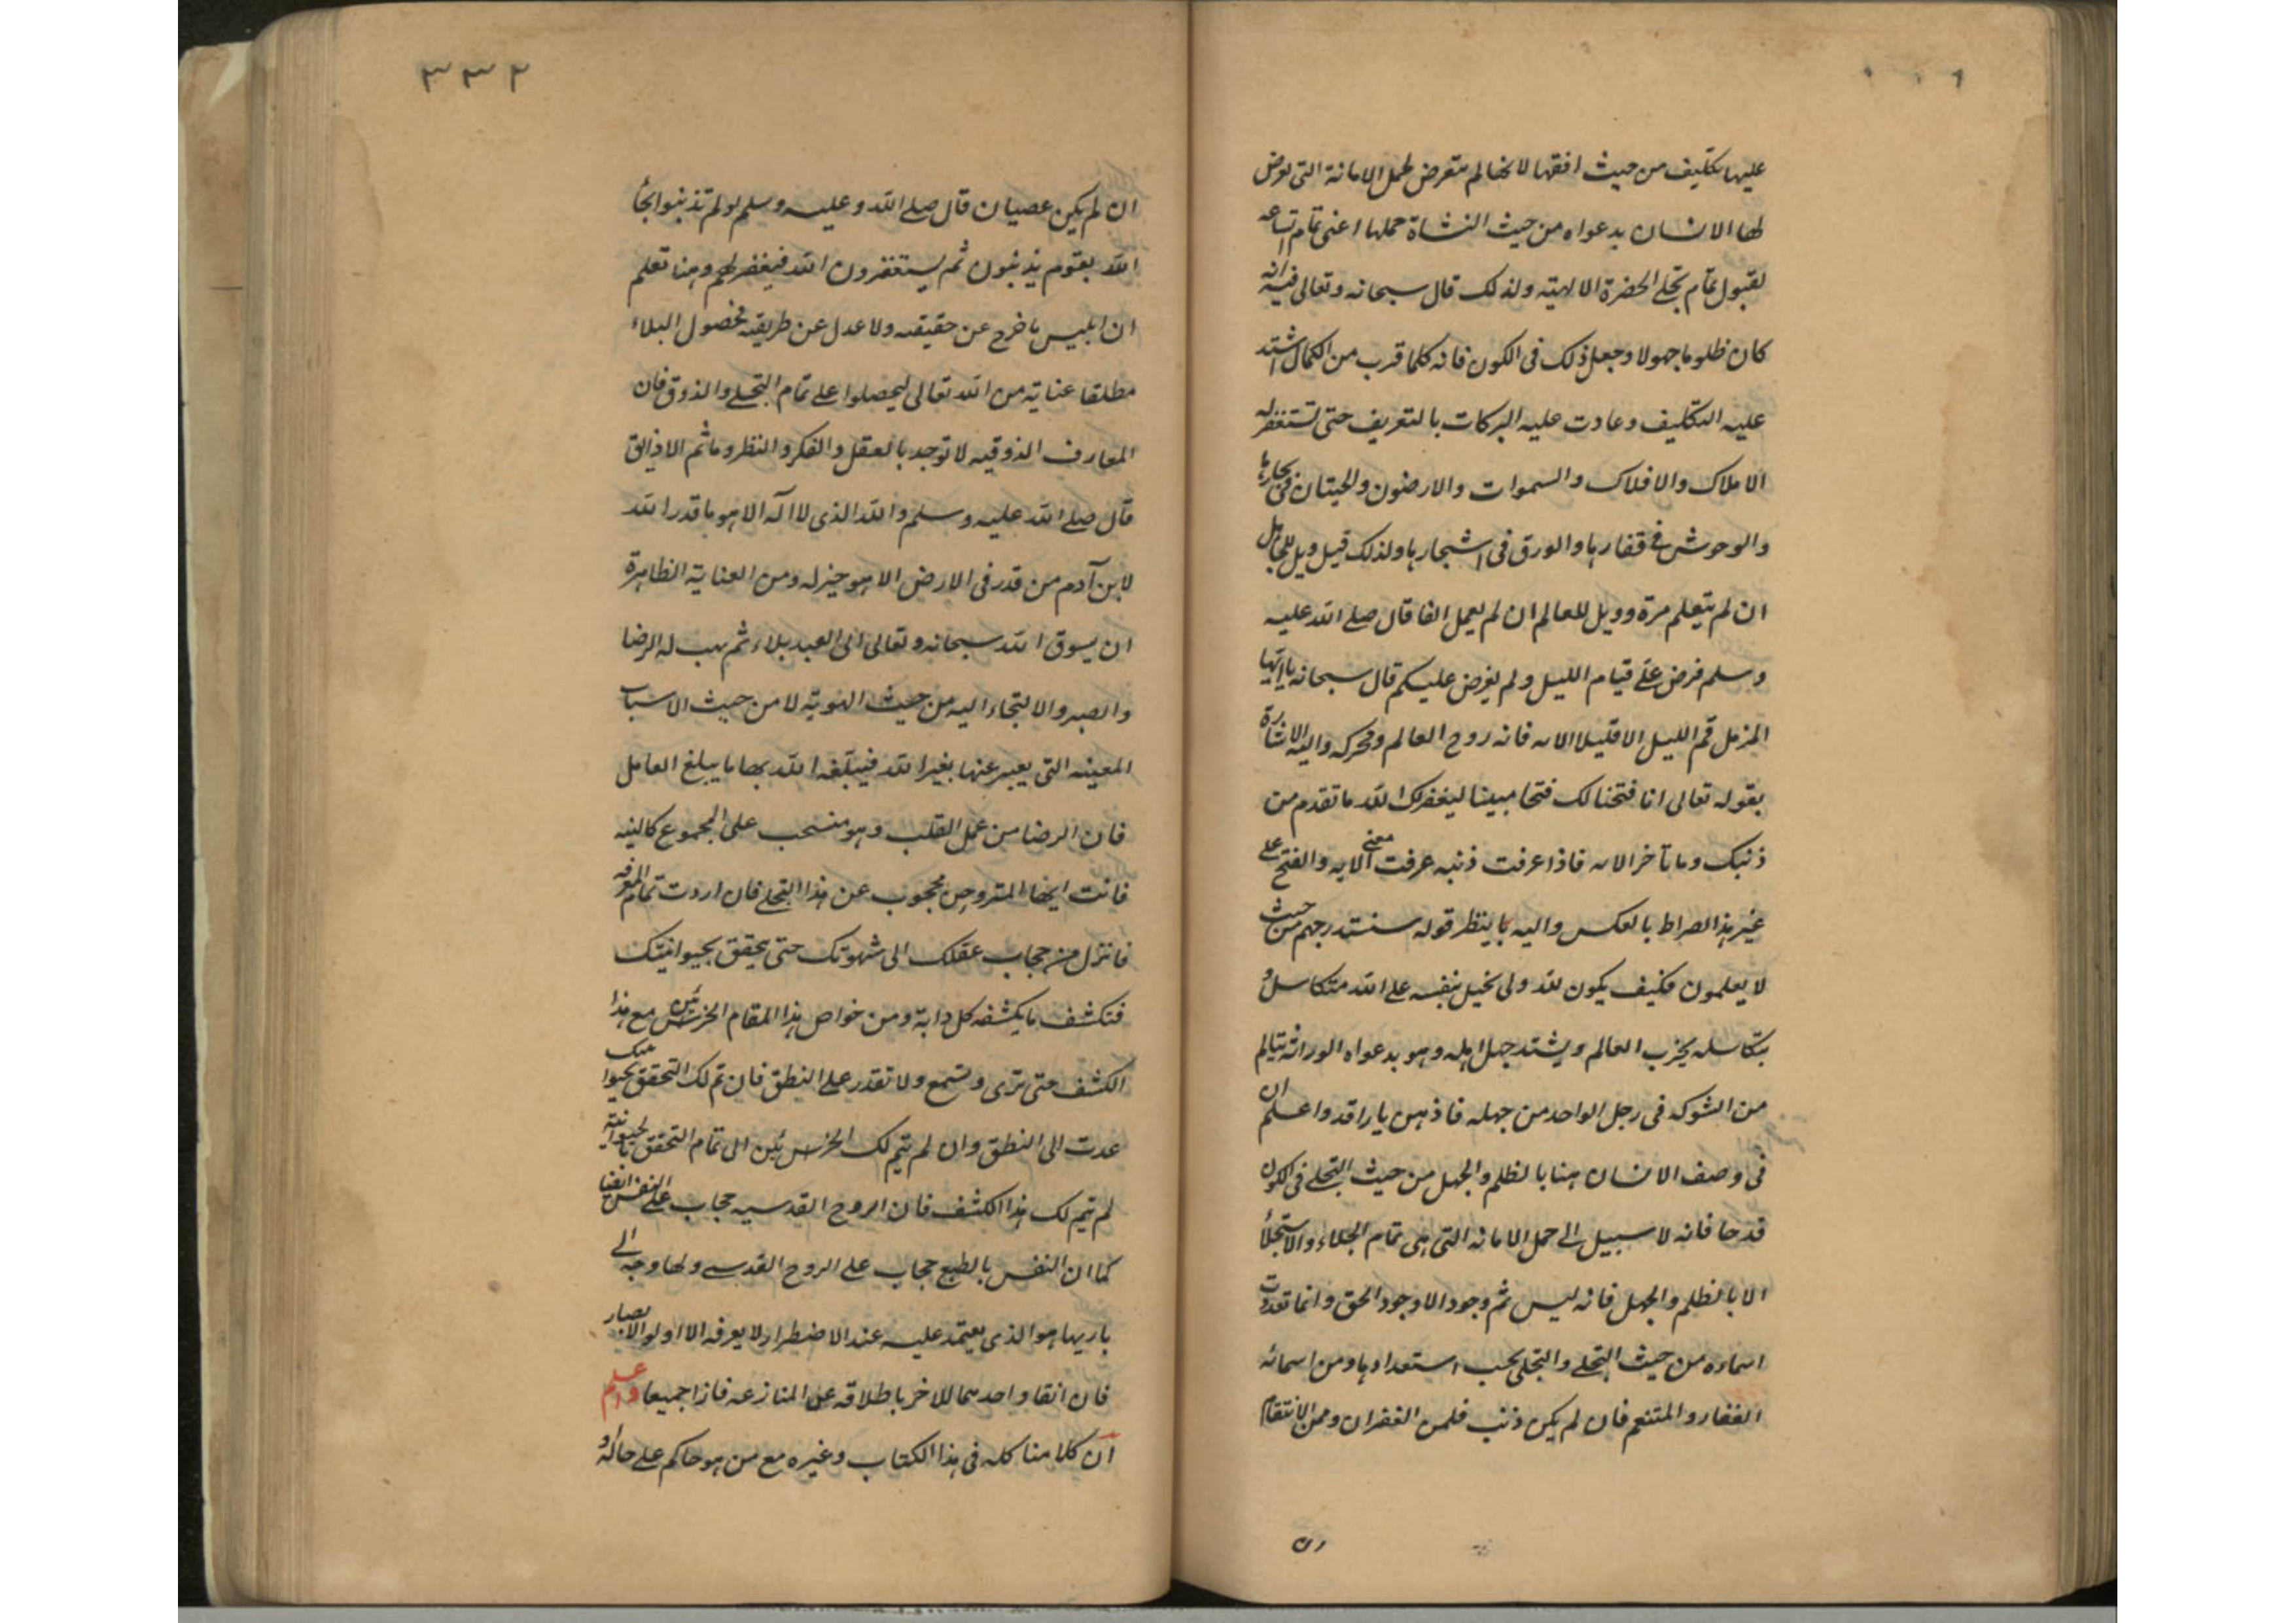 عليها تكليف من حيث افقها لانها لم تتعرض لحمل الامانة التى تعرض
لها الانسان بدعواه من حيث النشاة حملها اعنى تمام اتساعه
لقبول تمام تجلى الحضرة الالهية ولذلك قال سبحانه وتعالى فيه انه
كان ظلوما جهولا وجعل ذلك فى الكون فانه كلما قرب من الكمال اشتد
عليه التكليف وعادت عليه البركات بالتعريف حتى تستغفر له
الاملاك والافلاك والسموات والارضون والحيتان فى بحارها
والوحوش فى قفارها والورق فى اشجارها ولذلك قيل ويل للجاهل
ان لم يتعلم مرة وويل للعالم ان لم يعمل الفا قال صلى الله عليه
وسلم فرض على قيام الليل ولم يفرض عليكم قال سبحانه يا ايها
المزمل قم الليل الا قليلا الايه فانه روح العالم ومحركه واليه الاشارة
بقوله تعالى انا فتحنا لك فتحا مبينا ليغفر لك الله ما تقدم من
ذنبك وما تأخر الايه فاذا عرفت ذنبه عرفت معنى الايه والفتح على
غير هذا الصراط بالعكس واليه ينظر قوله سنستدرجهم من حيث
لا يعلمون فكيف يكون لله ولى بخيل بنفسه على الله متكاسل و
بتكاسله يخرب العالم ويشتد جهل اهله وهو بدعواه الوراثه يتالم
من الشوكه فى رجل الواحد من جهله فاذهن يا راقد واعلم ان
فى وصف الانسان هنا بالظلم والجهل من حيث التجلى فى الكون
قدحا فانه لا سبيل الى حمل الامانه التى هى تمام الجلاء والاستجلاء
الا بالظلم والجهل فانه ليس ثم وجود الا وجود الحق وانما تعددت
اسماءه من حيث التجلى والتجلى بحسب استعدادها ومن اسمائه
الغفار والمنتقم فان لم يكن ذنب فلمن الغفران وممن الانتقام
ان
٣٣٢
ان لم يكن عصيان قال صلى الله وعليه وسلم لو لم تذنبوا لجأ
الله بقوم يذنبون ثم يستغفرون الله فيغفر لهم وهنا تعلم
ان ابليس ما خرج عن حقيقه ولا عدل عن طريقه فحصول البلاء
مطلقا عناية من الله تعالى ليحصلوا على تمام التجلى والذوق فان
المعارف الذوقيه لا توجد بالعقل والفكر والنظر وما ثم الا ذائق
قال صلى الله عليه وسلم والله الذى لا اله الا هو ما قدر الله
لابن آدم من قدر فى الارض الا هو خير له ومن العناية الظاهرة
ان يسوق الله سبحانه وتعالى الى العبد بلاء ثم يهب له الرضا
والصبر والالتجاء اليه من حيث الهوية لا من حيث الاسباب
المعينه التى يعبر عنها بغير الله فيبلغه الله بها ما يبلغ العامل
فان الرضا من عمل القلب وهو منسحب على المجموع كالنيه
فانت ايها المتروحن محجوب عن هذا التجلى فان اردت تمام المعرفه
فانزل من حجاب عقلك الى شهوتك حتى يحقق بحيوانيتك
فتكشف ما يكشفه كل دابة ومن خواص هذا المقام الخرس مع هذا
الكشف حتى ترى وتسمع ولا تقدر على النطق فان تم لك التحقق بحيوانيتك
عدت الى النطق وان لم يتم لك الخرس الى تمام التحقق بالحيوانية
لم يتم لك هذا الكشف فان الروح القدسيه حجاب على النفس ايضا
كما ان النفس بالطبع حجاب على الروح القدسى ولها وجه الى
باريها هو الذى يعتمد عليه عند الاضطرار لا يعرفه الا اولو الابصار
فان اتقا واحدهما للاخر باطلاقه عن المنازعه فازا جميعا واعلم
ان كلامنا كله فى هذا الكتاب وغيره مع من هو حاكم على حاله و